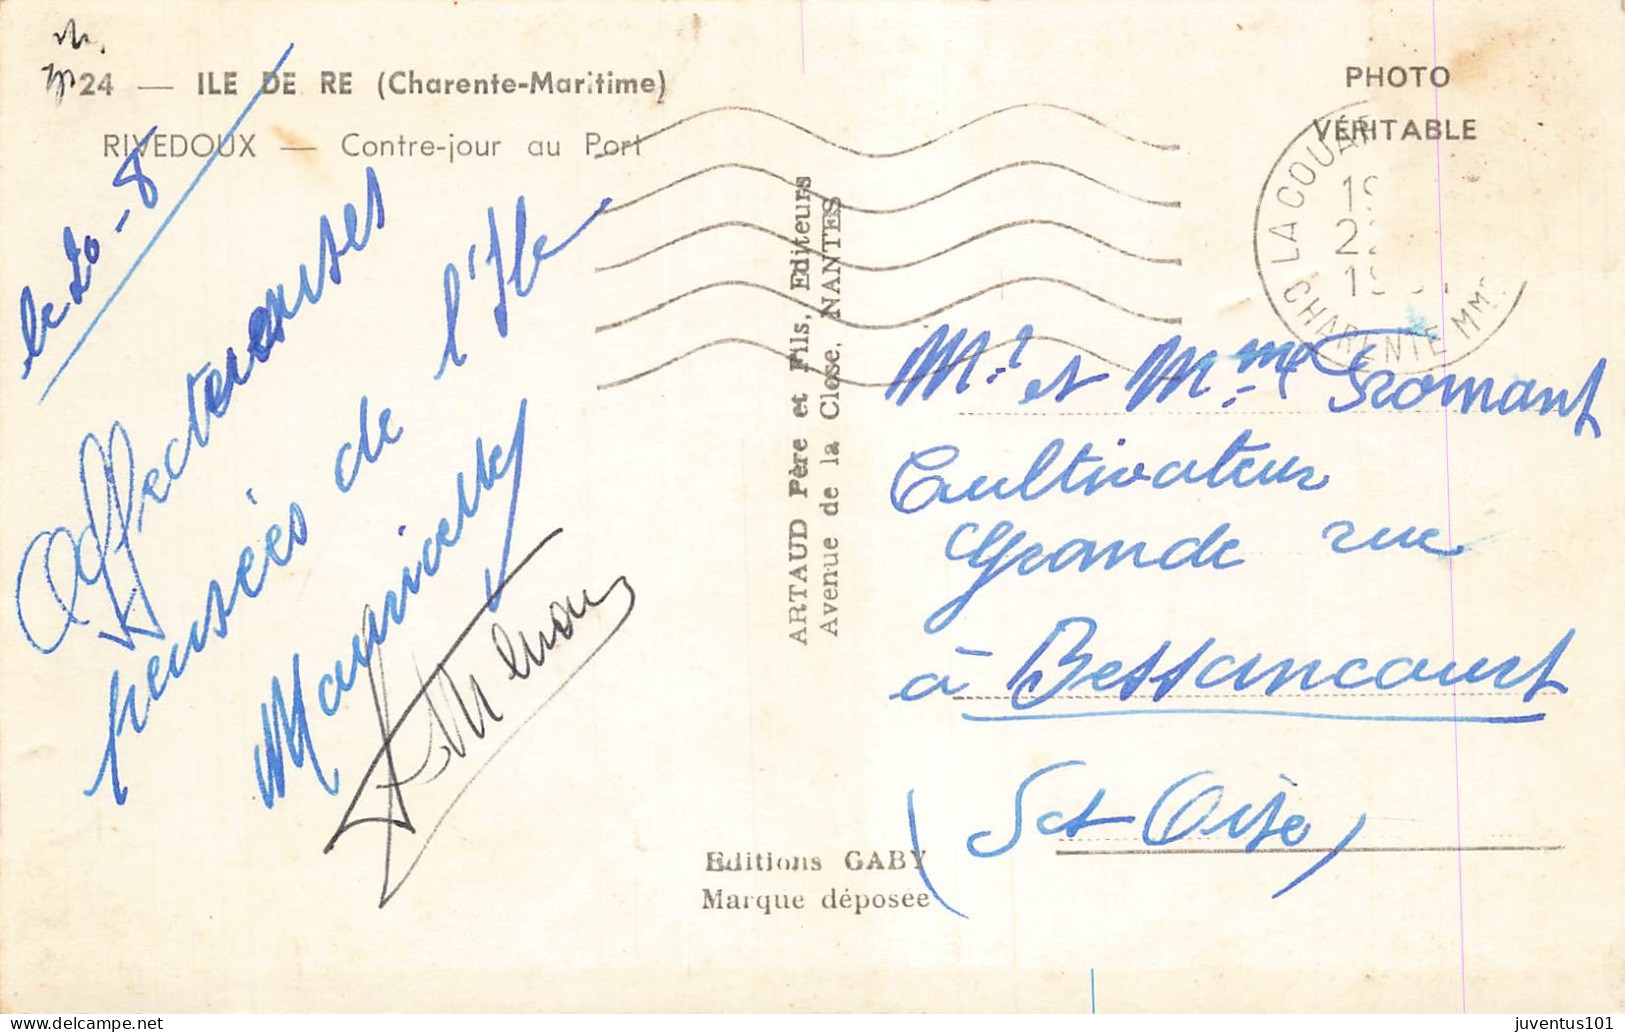 24 — ILE DE RE (Charente-Maritime)
RIVEDOUX — Contre-jour au Port
le 20-8
Affectueuses
pensées de l'Ile
ARTAUD Père et Fils, Editeurs
Avenue de la Close, NANTES
Editions GABY
Marque déposée
PHOTO
VÉRITABLE
LA COUAR
CHARENTE MME
Mr et Mme Gromant
Cultivateur
Grande rue
à Bessancourt
(S et Oise)
juventus101